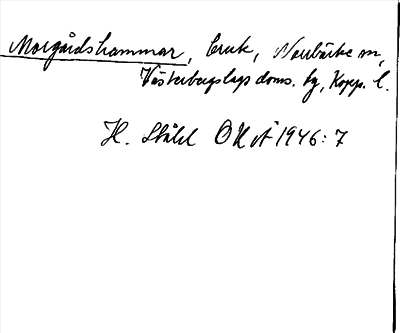 Morgårdshammar, bruk, Norrbärke sn,
Västerbergslags doms. hg, Kopp. l.
H. Ståhl OUÅ 1946: 7